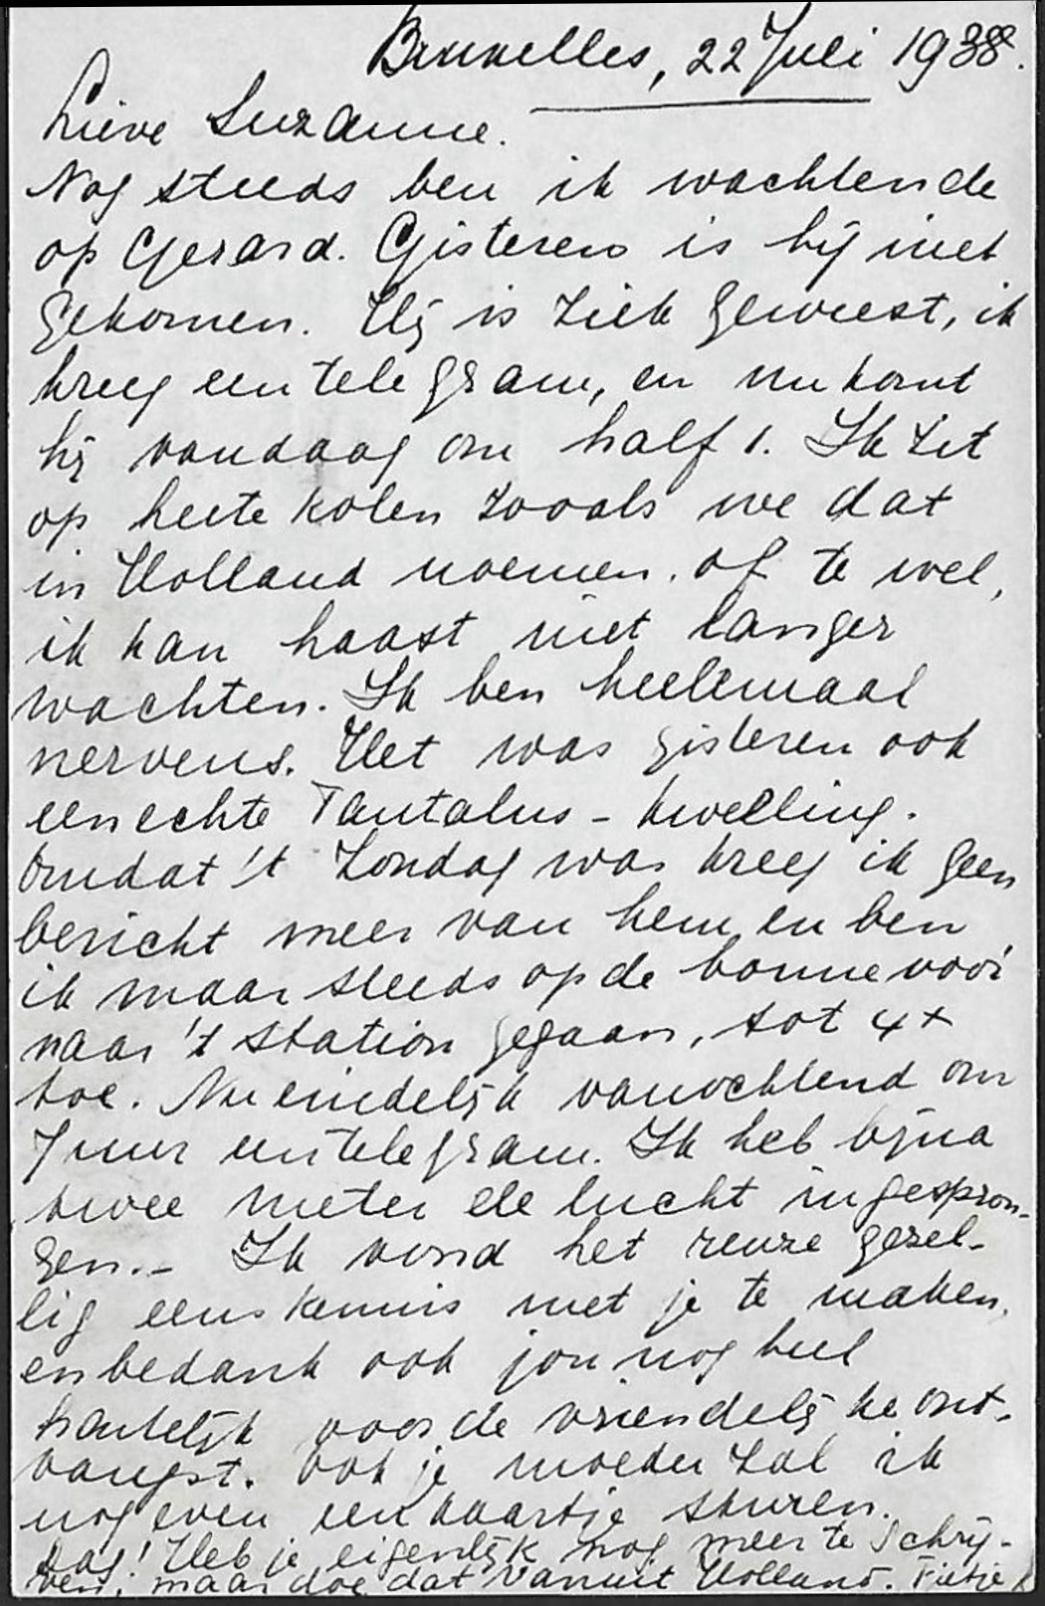 Bruxelles, 22 Juli 1938.
Lieve Suzanne.
Nog steeds ben ik wachtende
op Gerard. Gisteren is hij niet
gekomen. Hij is ziek geweest, ik
kreeg een telegram, en nu komt
hij vandaag om half 1. Ik zit
op heete kolen zooals we dat
in Holland noemen. of te wel,
ik kan haast niet langer
wachten. Ik ben heelemaal
nerveus. Het was gisteren ook
een echte Tantalus-kwelling.
Omdat 't Zondag was kreeg ik geen
bericht meer van hem, en ben
ik maar steeds op de bonnevooi
naar 't station gegaan, tot 4x
toe. Nu eindelijk vanochtend om
7 uur een telegram. Ik heb bijna
twee meter de lucht in gespron-
gen.- Ik vond het reuze gezel-
lig eens kennis met je te maken,
en bedank ook jou nog heel
hartelijk voor de vriendelijke ont-
vangst. Ook je moeder zal ik
nog even een kaartje sturen.
Dag! Heb je eigenlijk nog meer te schrij-
ven, maar doe dat vanuit Holland.